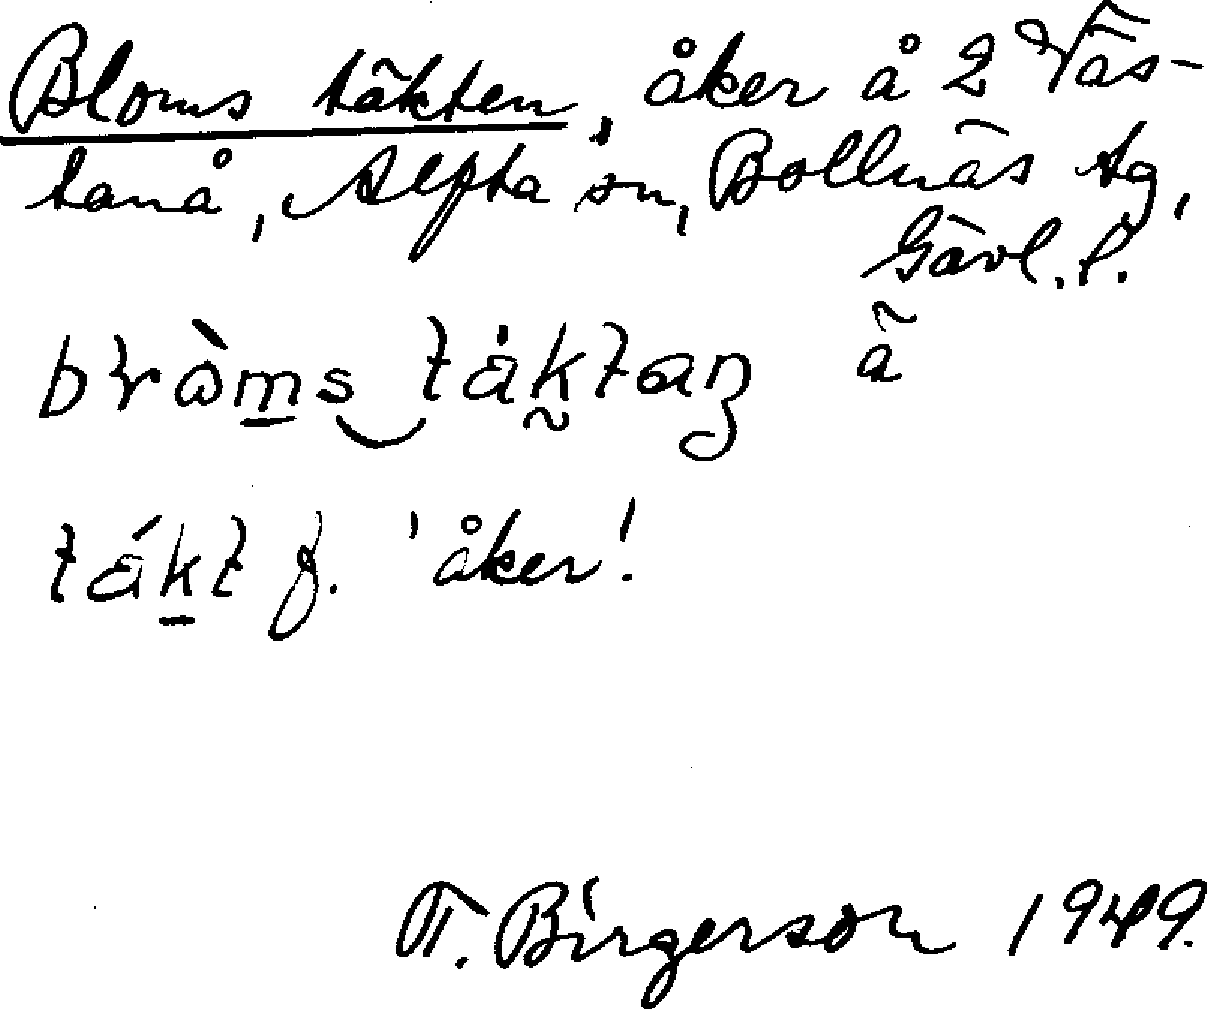 Blomstäkten, åker å 2 Väs-
tanå, Alfta sn, Bollnäs tg,
Gävl. l.
ä
täkt f. 'åker'.
T. Birgerson 1949.